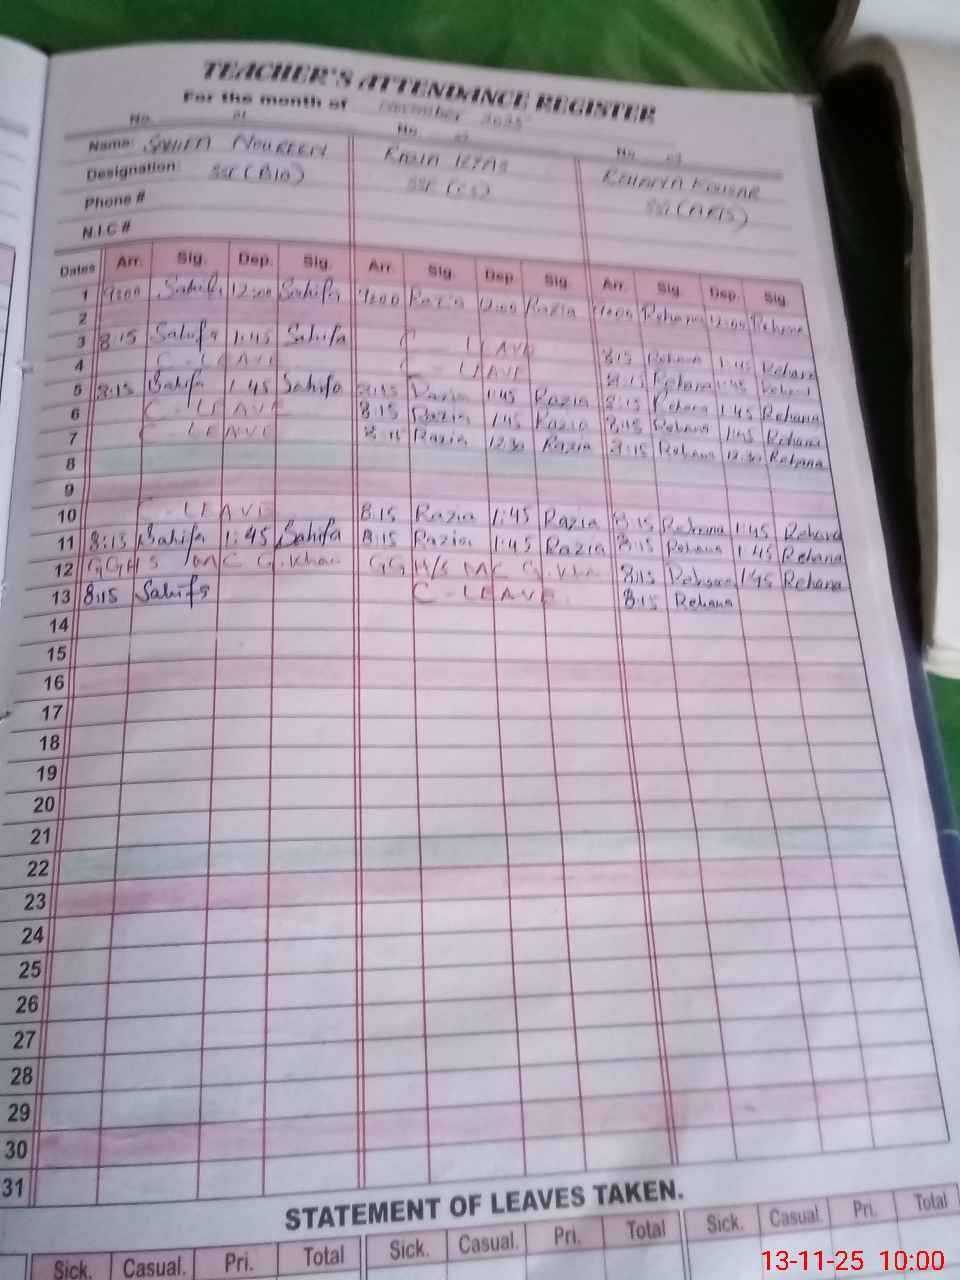 TEACHER'S ATTENDANCE REGISTER
For the month of November 2025
No. 01 No. 02 No. 03
Name: Sahifa Noureen Razia Rehana Kousar
Designation: SST (Bio) SST (CS) SST (ARTS)
Phone #
N.I.C #
Dates Arr. Sig. Dep. Sig. Arr. Sig. Dep. Sig. Arr. Sig. Dep. Sig.
1 9:00 Sahifa 12:00 Sahifa 9:00 Razia 12:00 Razia 9:00 Rehana 12:00 Rehana
2
3 8:15 Sahifa 1:45 Sahifa C - LEAVE 8:15 Rehana 1:45 Rehana
4 C - LEAVE C - LEAVE 8:15 Rehana 1:45 Rehana
5 8:15 Sahifa 1:45 Sahifa 8:15 Razia 1:45 Razia 8:15 Rehana 1:45 Rehana
6 C - LEAVE 8:15 Razia 1:45 Razia 8:15 Rehana 1:45 Rehana
7 C - LEAVE 8:15 Razia 12:30 Razia 8:15 Rehana 12:30 Rehana
8
9
10 C - LEAVE 8:15 Razia 1:45 Razia 8:15 Rehana 1:45 Rehana
11 8:15 Sahifa 1:45 Sahifa 8:15 Razia 1:45 Razia 8:15 Rehana 1:45 Rehana
12 GGHS MC G. Khan GGHS MC G. Khan 8:15 Rehana 1:45 Rehana
13 8:15 Sahifa C - LEAVE 8:15 Rehana
14
15
16
17
18
19
20
21
22
23
24
25
26
27
28
29
30
31
STATEMENT OF LEAVES TAKEN.
Sick. Casual. Pri. Total Sick. Casual. Pri. Total Sick. Casual. Pri. Total
13-11-25 10:00